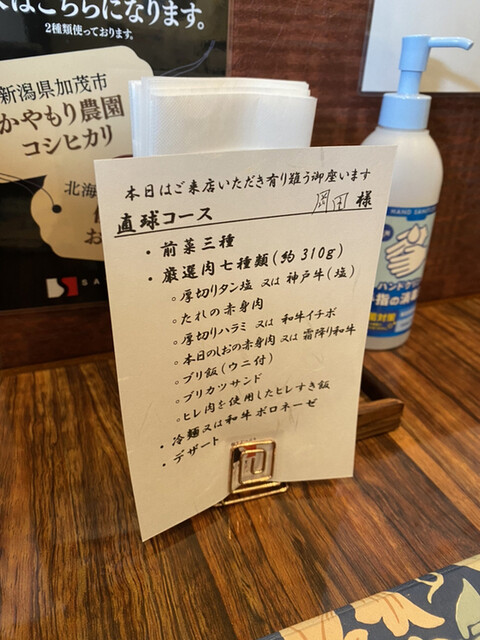 はこちらになります。
2種類使っております。
新潟県加茂市
かやもり農園
コシヒカリ
北海
お
本日はご来店いただき有り難う御座います
直球コース
岡田 様
・前菜三種
・厳選肉七種類(約310g)
○厚切りタン塩 又は 神戸牛(塩)
○たれの赤身肉
○厚切りハラミ 又は 和牛イチボ
○本日のしおの赤身肉 又は 霜降り和牛
○ブリ飯(ウニ付)
○ブリカツサンド
○ヒレ肉を使用したヒレすき飯
・冷麺又は和牛ボロネーゼ
・デザート
HAND SANIT
ハンド
手指の消毒